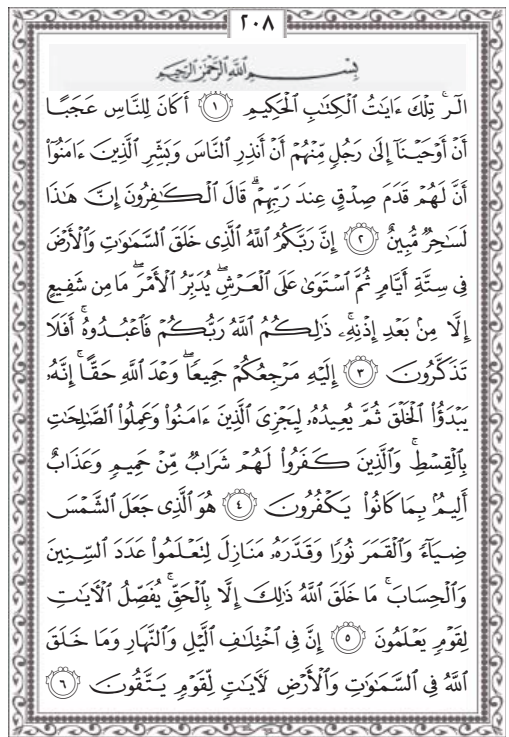 ٢٠٨
بِسْمِ ٱللَّهِ ٱلرَّحْمَٰنِ ٱلرَّحِيمِ
الٓر ۚ تِلْكَ ءَايَٰتُ ٱلْكِتَٰبِ ٱلْحَكِيمِ ١ أَكَانَ لِلنَّاسِ عَجَبًا
أَنْ أَوْحَيْنَآ إِلَىٰ رَجُلٍ مِّنْهُمْ أَنْ أَنذِرِ ٱلنَّاسَ وَبَشِّرِ ٱلَّذِينَ ءَامَنُوٓا۟
أَنَّ لَهُمْ قَدَمَ صِدْقٍ عِندَ رَبِّهِمْ ۗ قَالَ ٱلْكَٰفِرُونَ إِنَّ هَٰذَا
لَسَٰحِرٌ مُّبِينٌ ٢ إِنَّ رَبَّكُمُ ٱللَّهُ ٱلَّذِى خَلَقَ ٱلسَّمَٰوَٰتِ وَٱلْأَرْضَ
فِى سِتَّةِ أَيَّامٍ ثُمَّ ٱسْتَوَىٰ عَلَى ٱلْعَرْشِ ۖ يُدَبِّرُ ٱلْأَمْرَ ۖ مَا مِن شَفِيعٍ
إِلَّا مِنۢ بَعْدِ إِذْنِهِۦ ۚ ذَٰلِكُمُ ٱللَّهُ رَبُّكُمْ فَٱعْبُدُوهُ ۚ أَفَلَا
تَذَكَّرُونَ ٣ إِلَيْهِ مَرْجِعُكُمْ جَمِيعًا ۖ وَعْدَ ٱللَّهِ حَقًّا ۚ إِنَّهُۥ
يَبْدَؤُا۟ ٱلْخَلْقَ ثُمَّ يُعِيدُهُۥ لِيَجْزِىَ ٱلَّذِينَ ءَامَنُوا۟ وَعَمِلُوا۟ ٱلصَّٰلِحَٰتِ
بِٱلْقِسْطِ ۚ وَٱلَّذِينَ كَفَرُوا۟ لَهُمْ شَرَابٌ مِّنْ حَمِيمٍ وَعَذَابٌ
أَلِيمٌۢ بِمَا كَانُوا۟ يَكْفُرُونَ ٤ هُوَ ٱلَّذِى جَعَلَ ٱلشَّمْسَ
ضِيَآءً وَٱلْقَمَرَ نُورًا وَقَدَّرَهُۥ مَنَازِلَ لِتَعْلَمُوا۟ عَدَدَ ٱلسِّنِينَ
وَٱلْحِسَابَ ۚ مَا خَلَقَ ٱللَّهُ ذَٰلِكَ إِلَّا بِٱلْحَقِّ ۚ يُفَصِّلُ ٱلْءَايَٰتِ
لِقَوْمٍ يَعْلَمُونَ ٥ إِنَّ فِى ٱخْتِلَٰفِ ٱلَّيْلِ وَٱلنَّهَارِ وَمَا خَلَقَ
ٱللَّهُ فِى ٱلسَّمَٰوَٰتِ وَٱلْأَرْضِ لَءَايَٰتٍ لِّقَوْمٍ يَتَّقُونَ ٦